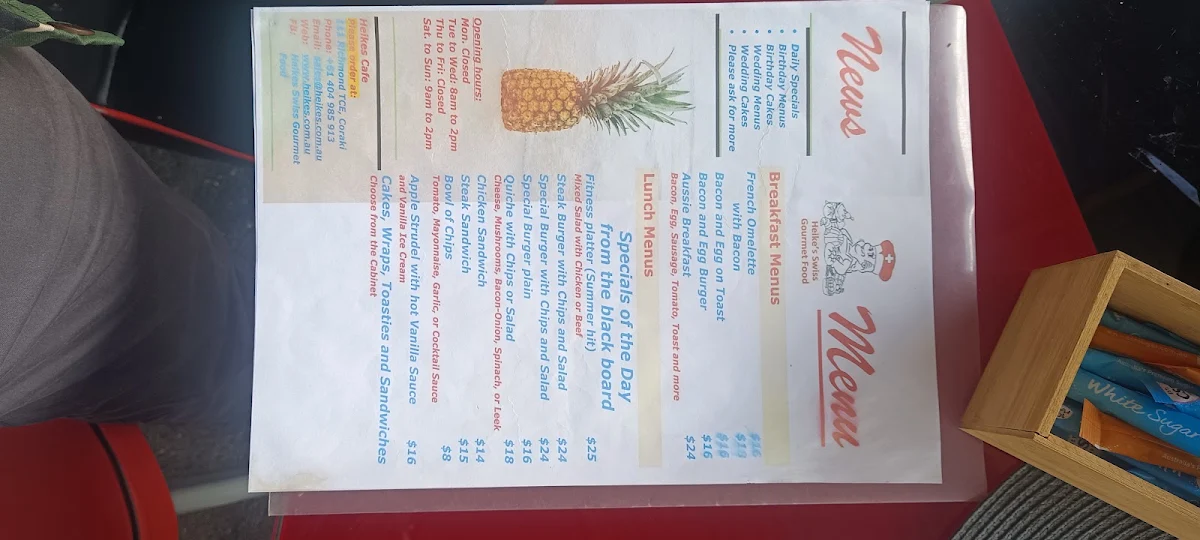 News
• Daily Specials
• Birthday Menus
• Birthday Cakes
• Wedding Menus
• Wedding Cakes
• Please ask for more
Opening hours:
Mon. Closed
Tue to Wed: 8am to 2pm
Thu to Fri: Closed
Sat. to Sun: 9am to 2pm
Heikes Cafe
Please order at:
Richmond TCE, Coraki
Phone: +61 404 985 913
Email: sales@heikes.com.au
Web: www.heikes.com.au
FB: Heikes Swiss Gourmet
Food
Menu
Heike's Swiss
Gourmet Food
Breakfast Menus
French Omelette $16
with Bacon
Bacon and Egg on Toast $16
Bacon and Egg Burger $16
Aussie Breakfast $24
Bacon, Egg, Sausage, Tomato, Toast and more
Lunch Menus
Specials of the Day
from the black board
Fitness platter (Summer hit) $25
Mixed Salad with Chicken or Beef
Steak Burger with Chips and Salad $24
Special Burger with Chips and Salad $24
Special Burger plain $16
Quiche with Chips or Salad $18
Cheese, Mushrooms, Bacon-Onion, Spinach, or Leek
Chicken Sandwich $14
Steak Sandwich $15
Bowl of Chips $8
Tomato, Mayonnaise, Garlic, or Cocktail Sauce
Apple Strudel with hot Vanilla Sauce $16
and Vanilla Ice Cream
Cakes, Wraps, Toasties and Sandwiches
Choose from the Cabinet
White Sugar